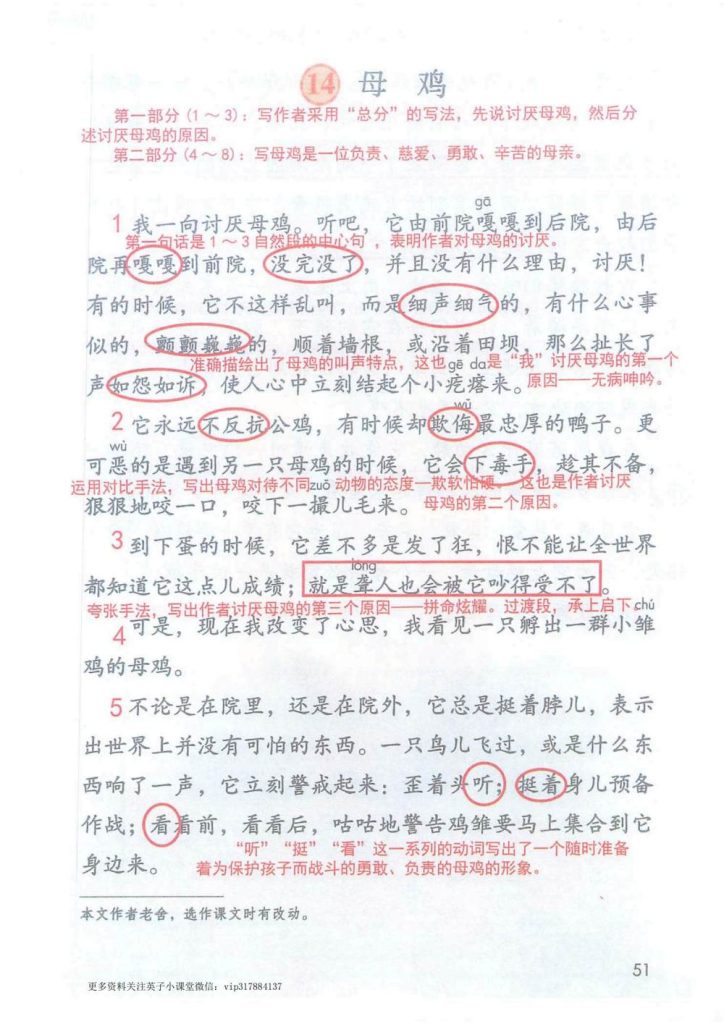 14 母鸡
第一部分(1～3)：写作者采用“总分”的写法，先说讨厌母鸡，然后分
述讨厌母鸡的原因。
第二部分(4～8)：写母鸡是一位负责、慈爱、勇敢、辛苦的母亲。
gā
1 我一向讨厌母鸡。听吧，它由前院嘎嘎到后院，由后
第一句话是1～3自然段的中心句，表明作者对母鸡的讨厌。
院再嘎嘎到前院，没完没了，并且没有什么理由，讨厌！
有的时候，它不这样乱叫，而是细声细气的，有什么心事
似的，颤颤巍巍的，顺着墙根，或沿着田坝，那么扯长了
准确描绘出了母鸡的叫声特点，这也 gē da 是“我”讨厌母鸡的第一个
声如怨如诉，使人心中立刻结起个小疙瘩来。 原因——无病呻吟。
wǔ
2 它永远不反抗公鸡，有时候却欺侮最忠厚的鸭子。更
wù
可恶的是遇到另一只母鸡的时候，它会下毒手，趁其不备，
运用对比手法，写出母鸡对待不同 zuǒ 动物的态度—欺软怕硬。 这也是作者讨厌
狠狠地咬一口，咬下一撮儿毛来。 母鸡的第二个原因。
3 到下蛋的时候，它差不多是发了狂，恨不能让全世界
lóng
都知道它这点儿成绩；就是聋人也会被它吵得受不了。
夸张手法，写出作者讨厌母鸡的第三个原因——拼命炫耀。过渡段，承上启下。 chú
4 可是，现在我改变了心思，我看见一只孵出一群小雏
鸡的母鸡。
5 不论是在院里，还是在院外，它总是挺着脖儿，表示
出世界上并没有可怕的东西。一只鸟儿飞过，或是什么东
西响了一声，它立刻警戒起来：歪着头听；挺着身儿预备
作战；看看前，看看后，咕咕地警告鸡雏要马上集合到它
“听”“挺”“看”这一系列的动词写出了一个随时准备
身边来。 着为保护孩子而战斗的勇敢、负责的母鸡的形象。
本文作者老舍，选作课文时有改动。
51
更多资料关注英子小课堂微信：vip317884137